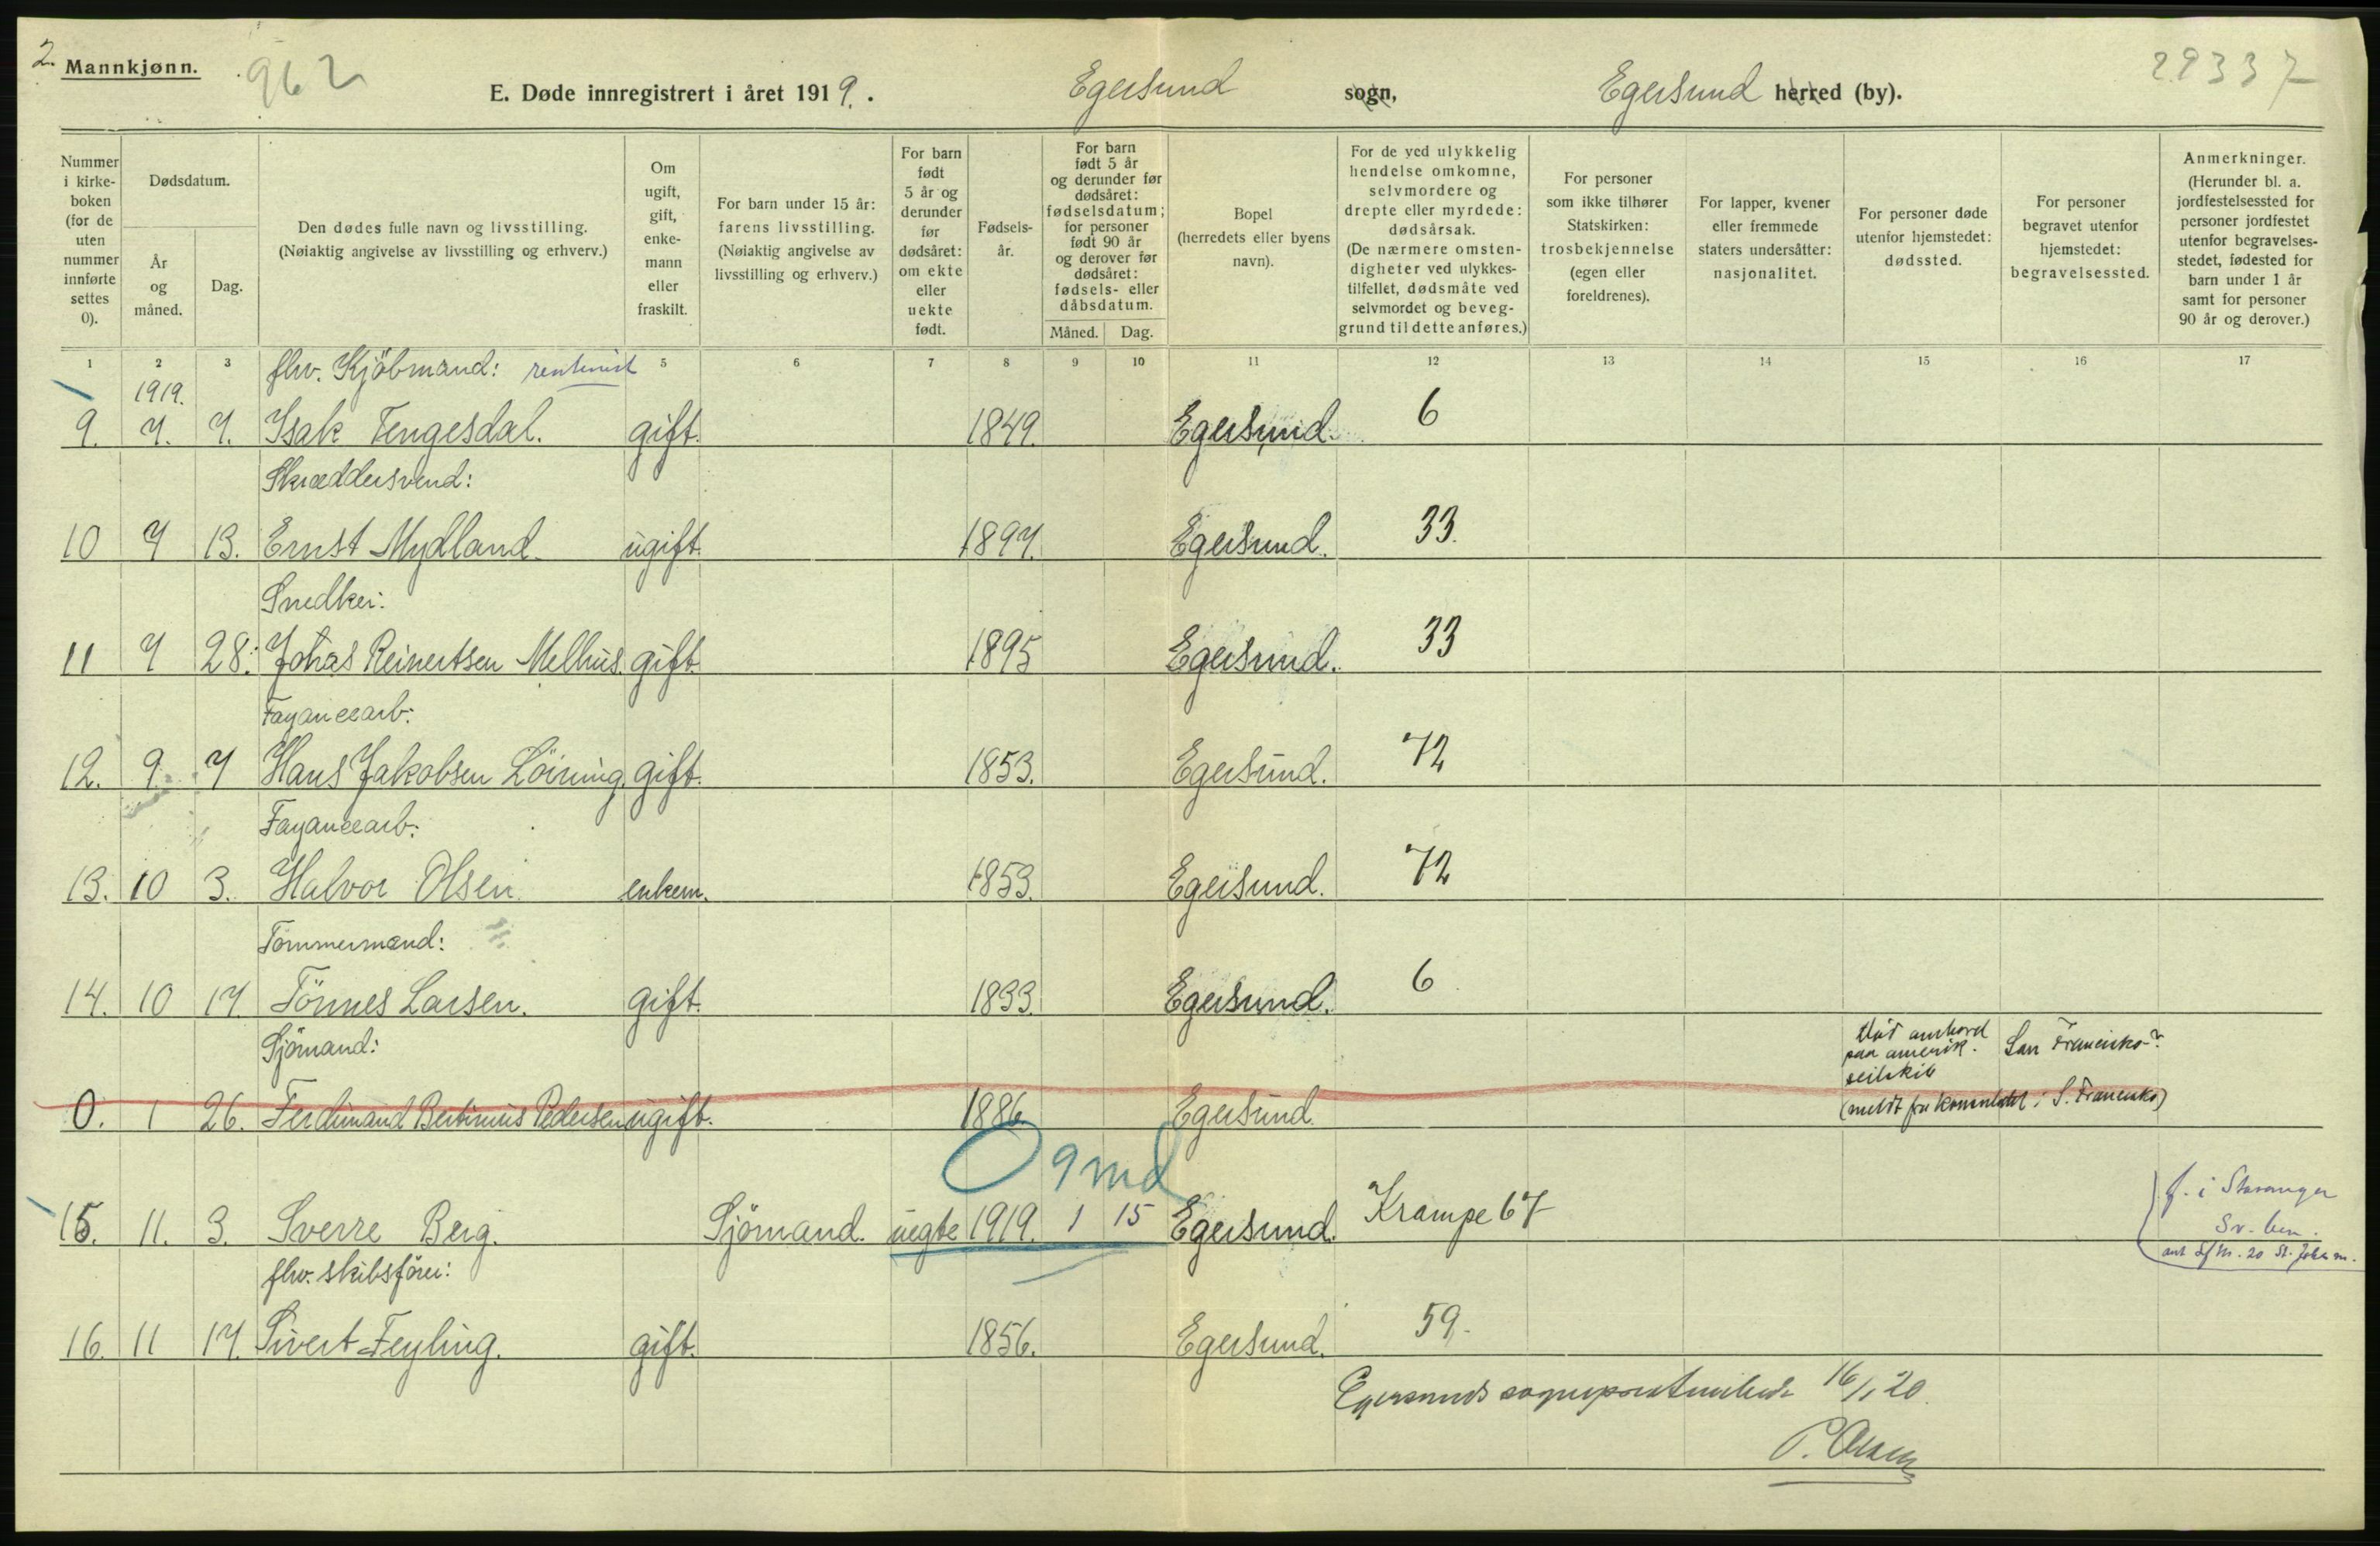 2. Mannkjønn. 962 29337
E. Døde innregistrert i året 1919. Egersund sogn, Egersund herred (by).
Nummer i kirke-boken (for de uten nummer innførte settes 0).
Dødsdatum.
År og måned.
Dag.
Den dødes fulle navn og livsstilling.
(Nøiaktig angivelse av livsstilling og erhverv.)
Om ugift, gift, enke-mann eller fraskilt.
For barn under 15 år: farens livsstilling. (Nøiaktig angivelse av livsstilling og erhverv.)
For barn født 5 år og derunder før dødsåret: om ekte eller uekte født.
Fødsels-år.
For barn født 5 år og derunder før dødsåret: fødselsdatum; for personer født 90 år og derover før dødsåret: fødsels- eller dåbsdatum.
Måned. Dag.
Bopel (herredets eller byens navn).
For de ved ulykkelig hendelse omkomne, selvmordere og drepte eller myrdede: dødsårsak. (De nærmere omsten-digheter ved ulykkes-tilfellet, dødsmåte ved selvmordet og beveg-grund til dette anføres.)
For personer som ikke tilhører Statskirken: trosbekjennelse (egen eller foreldrenes).
For lapper, kvener eller fremmede staters undersåtter: nasjonalitet.
For personer døde utenfor hjemstedet: dødssted.
For personer begravet utenfor hjemstedet: begravelsessted.
Anmerkninger. (Herunder bl. a. jordfestelsessted for personer jordfestet utenfor begravelses-stedet, fødested for barn under 1 år samt for personer 90 år og derover.)
1 2 3 5 6 7 8 9 10 11 12 13 14 15 16 17
flw. Kjöbmand: rentenist
1919.
9. 7. 7. Isak Tengesdal. gift. 1849. Egersund. 6
Skræddersvend:
10 7 13. Ernst Mydland. ugift. 1897. Egersund. 33.
Snedker:
11 7 28. Johas Reinertsen Melhus. gift. 1895 Egersund. 33
Fayancearb:
12. 9. 7 Hans Jakobsen Löining. gift. 1853. Egersund. 72
Fayancearb:
13. 10 3. Halvor Olsen enkem. 1853. Egersund. 72
Tömmermand:
14. 10 17. Tönnes Larsen. gift. 1833. Egersund. 6
Sjömand:
Död ombord
paa amerik. San Francisko?
seilskib
0. 1 26. Ferdinand Bertinius Pedersen ugift. 1886 Egersund.
(meldt fra konsulatet i S. Francisko)
0 9 md
15. 11. 3. Sverre Berg. Sjömand. uegte 1919. 1 15 Egersund. Krampe 67
f. i Stavanger
flw. skibsförer:
16. 11 17. Sivert Feyling. gift. 1856. Egersund. 59.
Egersunds sogneprestembede 16/1 20.